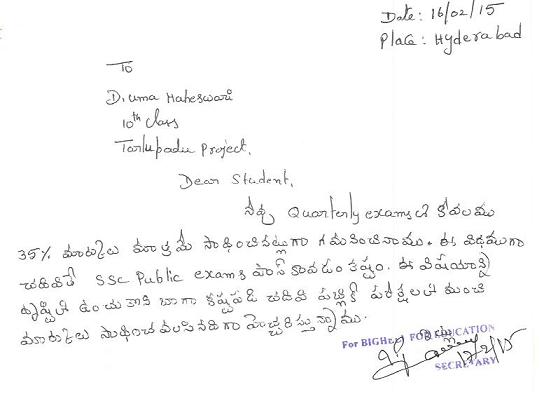 Date: 16/02/15
Place: Hyderabad
To
D. Uma Maheswari
10th class
Tarlupadu Project,
Dear Student,
నీవు Quarterly exams లో కేవలము
35% మార్కులు మాత్రమే సాధించినట్లుగా గమనించినాము. ఈ విధముగా
చదివితే SSC Public exams పాస్ కావడం కష్టం. ఈ విషయాన్ని
దృష్టిలో ఉంచుకొని బాగా కష్టపడి చదివి పబ్లిక్ పరీక్షలలో మంచి
మార్కులు సాధించవలసినదిగా హెచ్చరిస్తున్నాము.
For BIGHelp FOR EDUCATION
17/2/15
SECRETARY